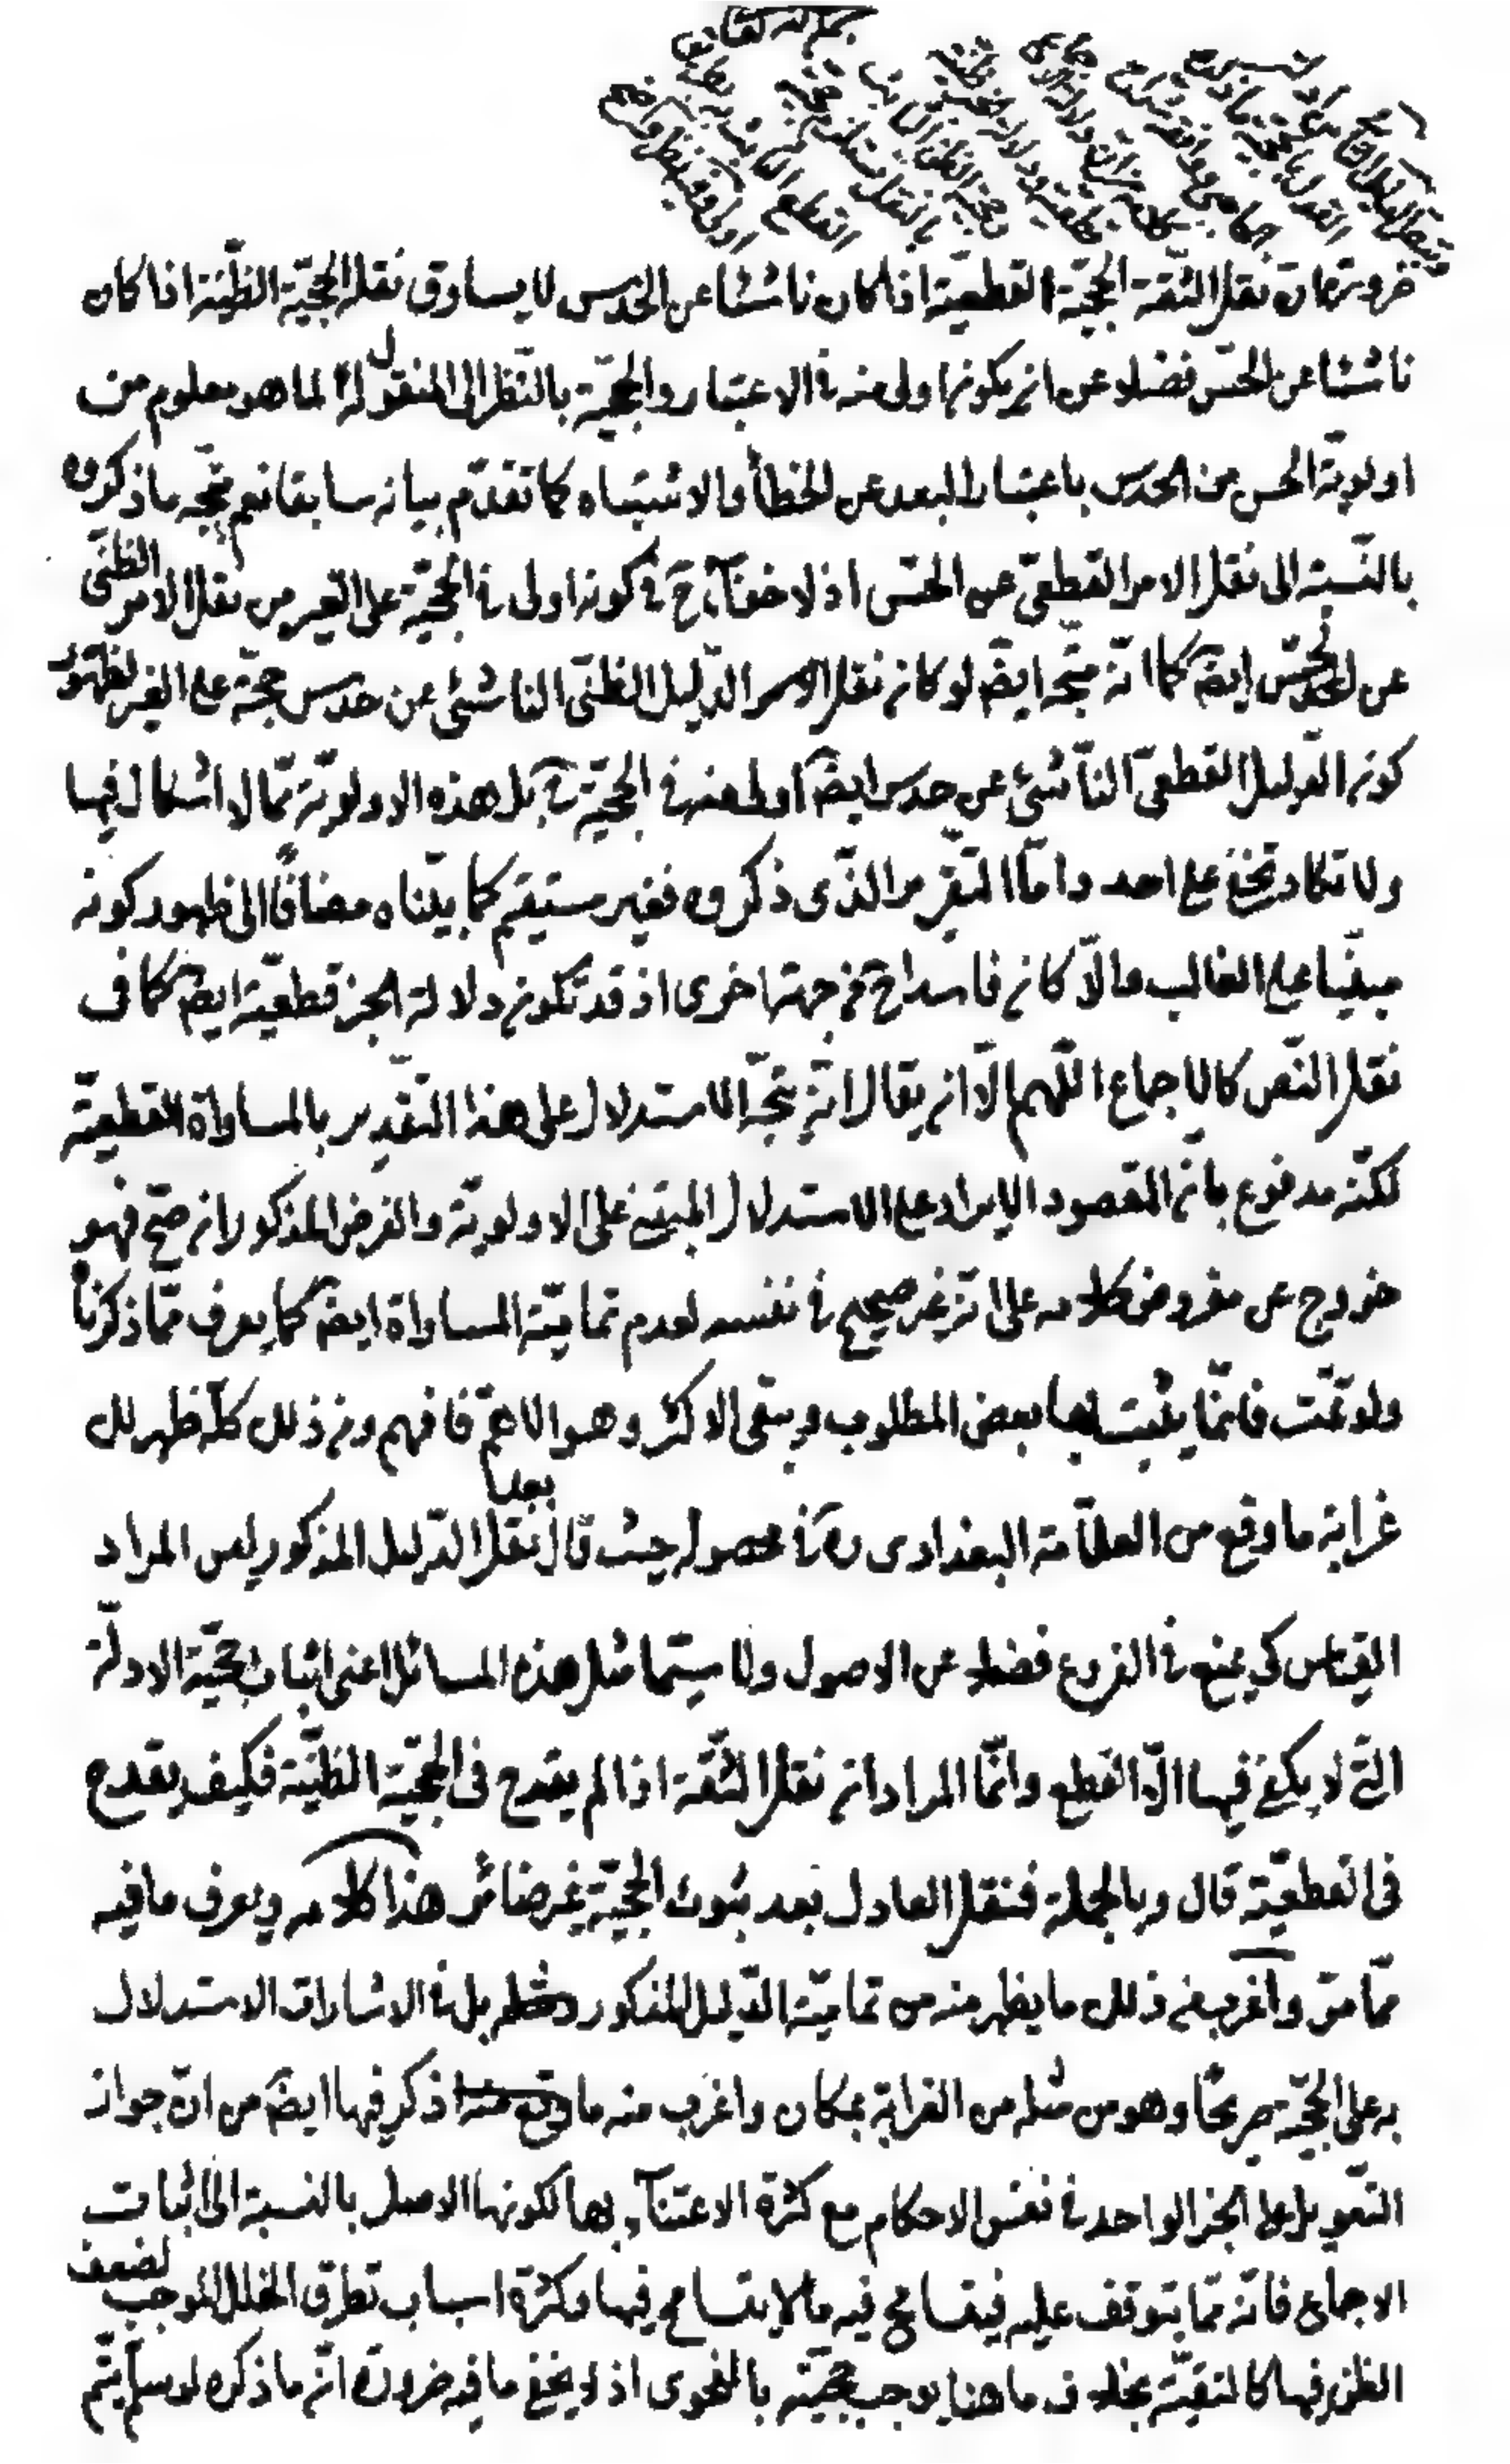 ضرورة ان نقل الثقة الحجّيّة القطعيّة اذا كان ناشئا عن الحدس لا يساوق نقله الحجيّة الظنّيّة اذا كان
ناشئا عن الحسّ فضلا عن ان يكون اولى منه في الاعتبار والحجّيّة بالنّظر الى المنقول له لما هو معلوم من
اولويّة الحس من الحدس باعتبار البعد عن الخطأ والاشتباه كما تقدّم بيانه سابقا نعم يتّجه ما ذكروه
بالنّسبة الى نقل الامر القطعيّ عن الحسّ اذ لا خفآء ح في كونه اولى في الحجّيّة على الغير من نقل الامر الظنّى
عن الحسّ ايضً كما انّه متّجه ايضً لو كان نقل الدّليل الظنّى الناشئى عن حدس حجّة على الغير لظهور
كون الدليل القطعىّ النّاشئى عن حدس ايضً اولى منه في الحجّيّة ح بل هذه الاولويّة ممّا لا اشكال فيها
ولا تكاد تخفى على احد وامّا التّقرير الّذى ذكروه فغير مستقيم كما بيّناه مضافًا الى ظهور كونه
مبنيّا على الغالب والّا كان فاسدا ح من جهة اخرى اذ قد تكون دلالة الخبر قطعيّة ايضً كما فى
نقل النّص كالاجماع اللّهم الّا ان يقال انّه يتّجه الاستدلال على هذا التّقدير بالمساواة القطعيّة
لكنّه مدفوع بانّ المقصود الايراد على الاستدلال المبتنى على الاولويّة والفرض المذكور ان صحّ فهو
خروج عن مفروض كلامه على انّه غير صحيح في نفسه لعدم تماميّة المساواة ايضً كما يعرف ممّا ذكرنا
ولو تمّت فانّما يثبت بها بعض المطلوب ويبقى الاكثر وهو الاعمّ فافهم ومن ذلك كلّه ظهر لك
غرابة ما وقع من العلّامة البغدادى ره في محصوله حيث قال بعد نقل الدّليل المذكور ليس المراد
القياس كى يمنع في الفروع فضلا عن الاصول ولا سيّما مثل هذه المسائل اعنى اثبات حجّيّة الادلّة
الّتى لا يكفى فيها الّا القطع وانّما المراد ان نقل الثّقة اذا لم يقدح فى الحجّيّة الظنّيّة فكيف يقدح
فى القطعيّة قال وبالجملة فنقل العادل بعد ثبوت الحجّيّة غير ضائر هذا كلامه ويعرف ما فيه
ممّا مرّ واغرب من ذلك ما يظهر منه من تماميّة الدّليل المذكور بل في الاشارات الاستدلال
به على الحجّيّة صريحًا وهو من مثله من الغرابة بمكان واغرب منه ما ذكر فيها ايضً من انّ جواز
التّعويل على الخبر الواحد في نفس الاحكام مع كثرة الاعتنآء بها لكونها الاصل بالنسبة الى اثبات
الاجماع فانّه ممّا يتوقف عليه فيتسامح فيه ما لا يتسامح فيها وكثرة اسباب تطرّق الخلل الموجب لضعف
الظن فيها كالتقيّة بخلاف ما هنا يوجب حجيّته بالفحوى اذ لا يخفى ما فيه ضرورة انّ ما ذكره لو سلّم يتمّ